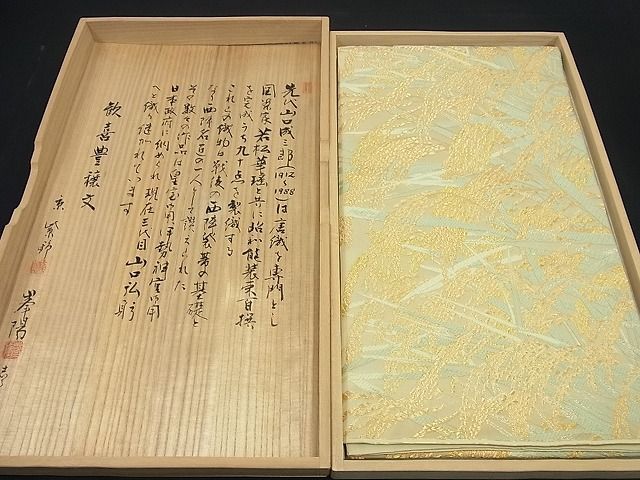 先代山口成三郎(1912~1988)は唐織を専門とし
図案家若松華瑤と共に昭和能装束百撰
を完成うち九十点を製織する
これらの織物は戦後の西陣袋帯の基礎と
なり西陣名匠の一人として讃えられた
その数々の作品は皇室御用伊勢神宮御用
日本政府に納めくれ現在三代目山口弘
へと織り継がれています
歓喜豊穣文
京 紫野
峯陽